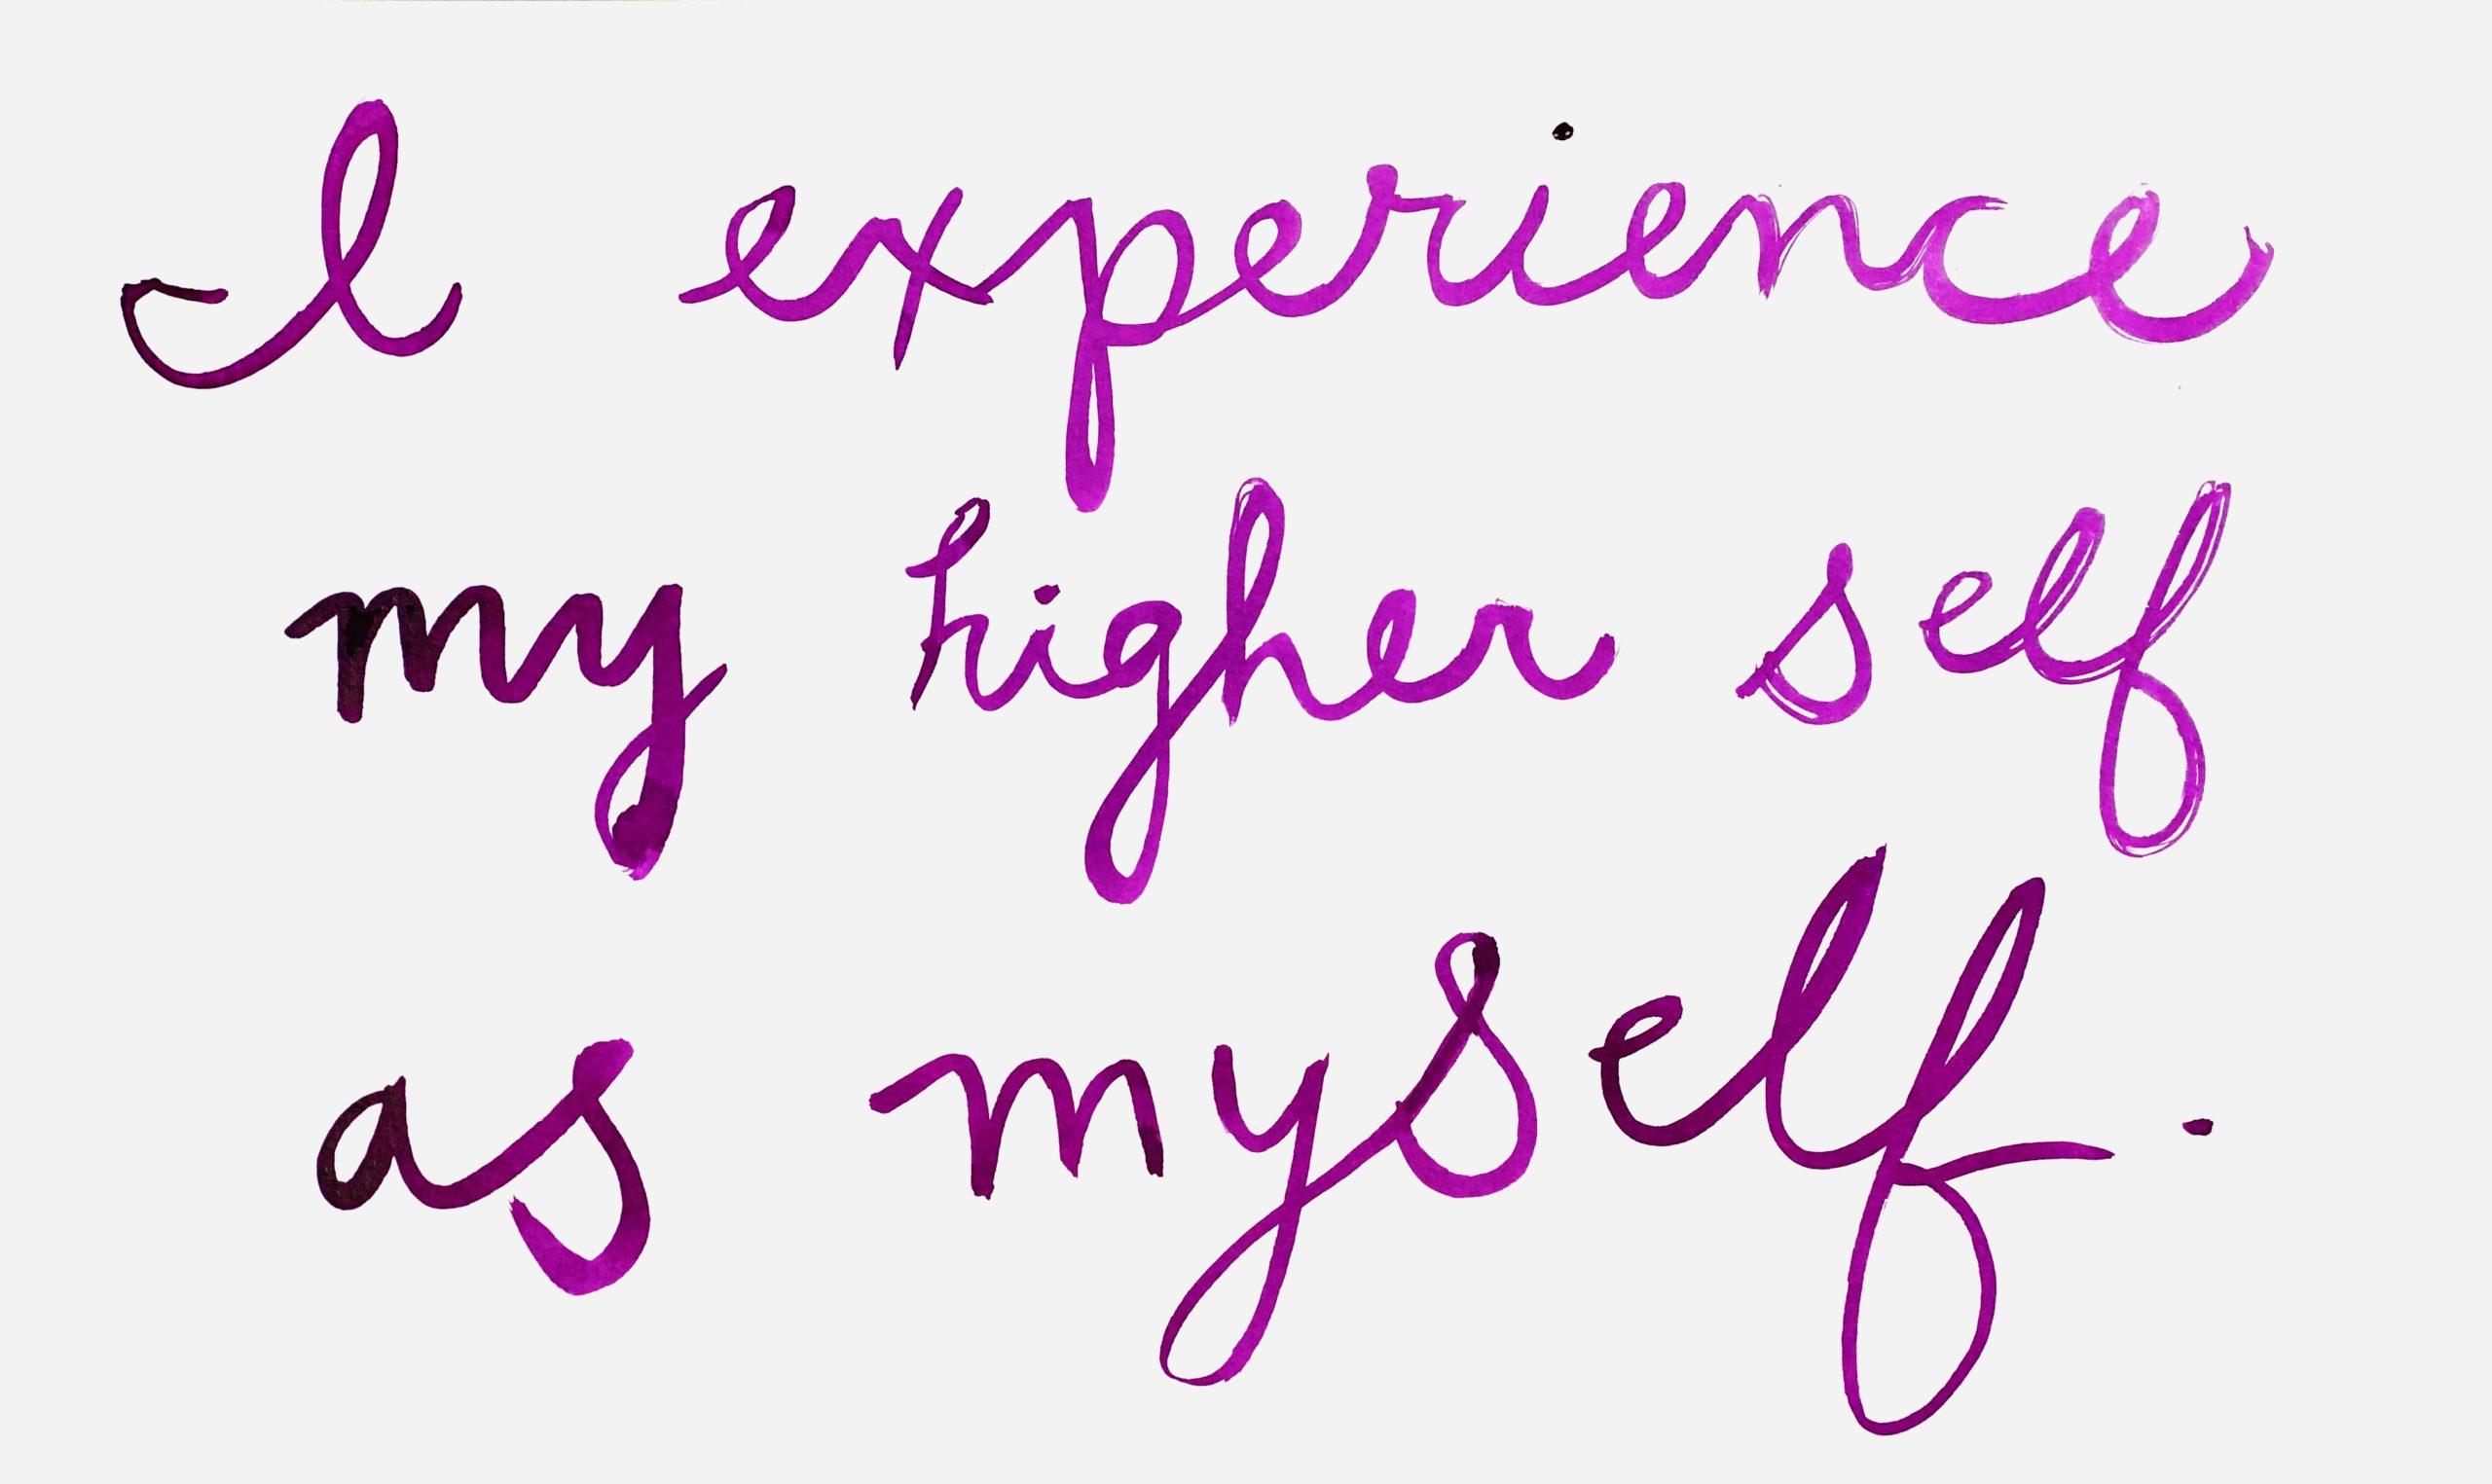 I experience
my higher self
as myself.